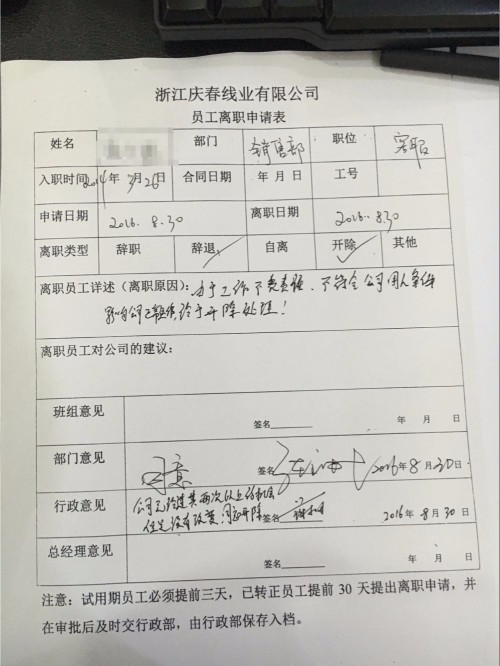 浙江庆春线业有限公司
员工离职申请表
姓名 部门 销售部 职位 客服
入职时间 2014年 3月26日 合同日期 年 月 日 工号
申请日期 2016.8.30 离职日期 2016.8.30
离职类型 辞职 辞退 自离 开除 其他
离职员工详述（离职原因）：由于工作不负责任、不符合公司用人条件
公司已 给予开除处理！
离职员工对公司的建议：
班组意见
签名 年 月 日
部门意见 同意 签名 2016年8月30日
行政意见 公司已给过其两次以上的机会
但是没有改变，同意开除 签名 2016年8月30日
总经理意见
签名 年 月 日
注意：试用期员工必须提前三天，已转正员工提前 30 天提出离职申请，并
在审批后及时交行政部，由行政部保存入档。